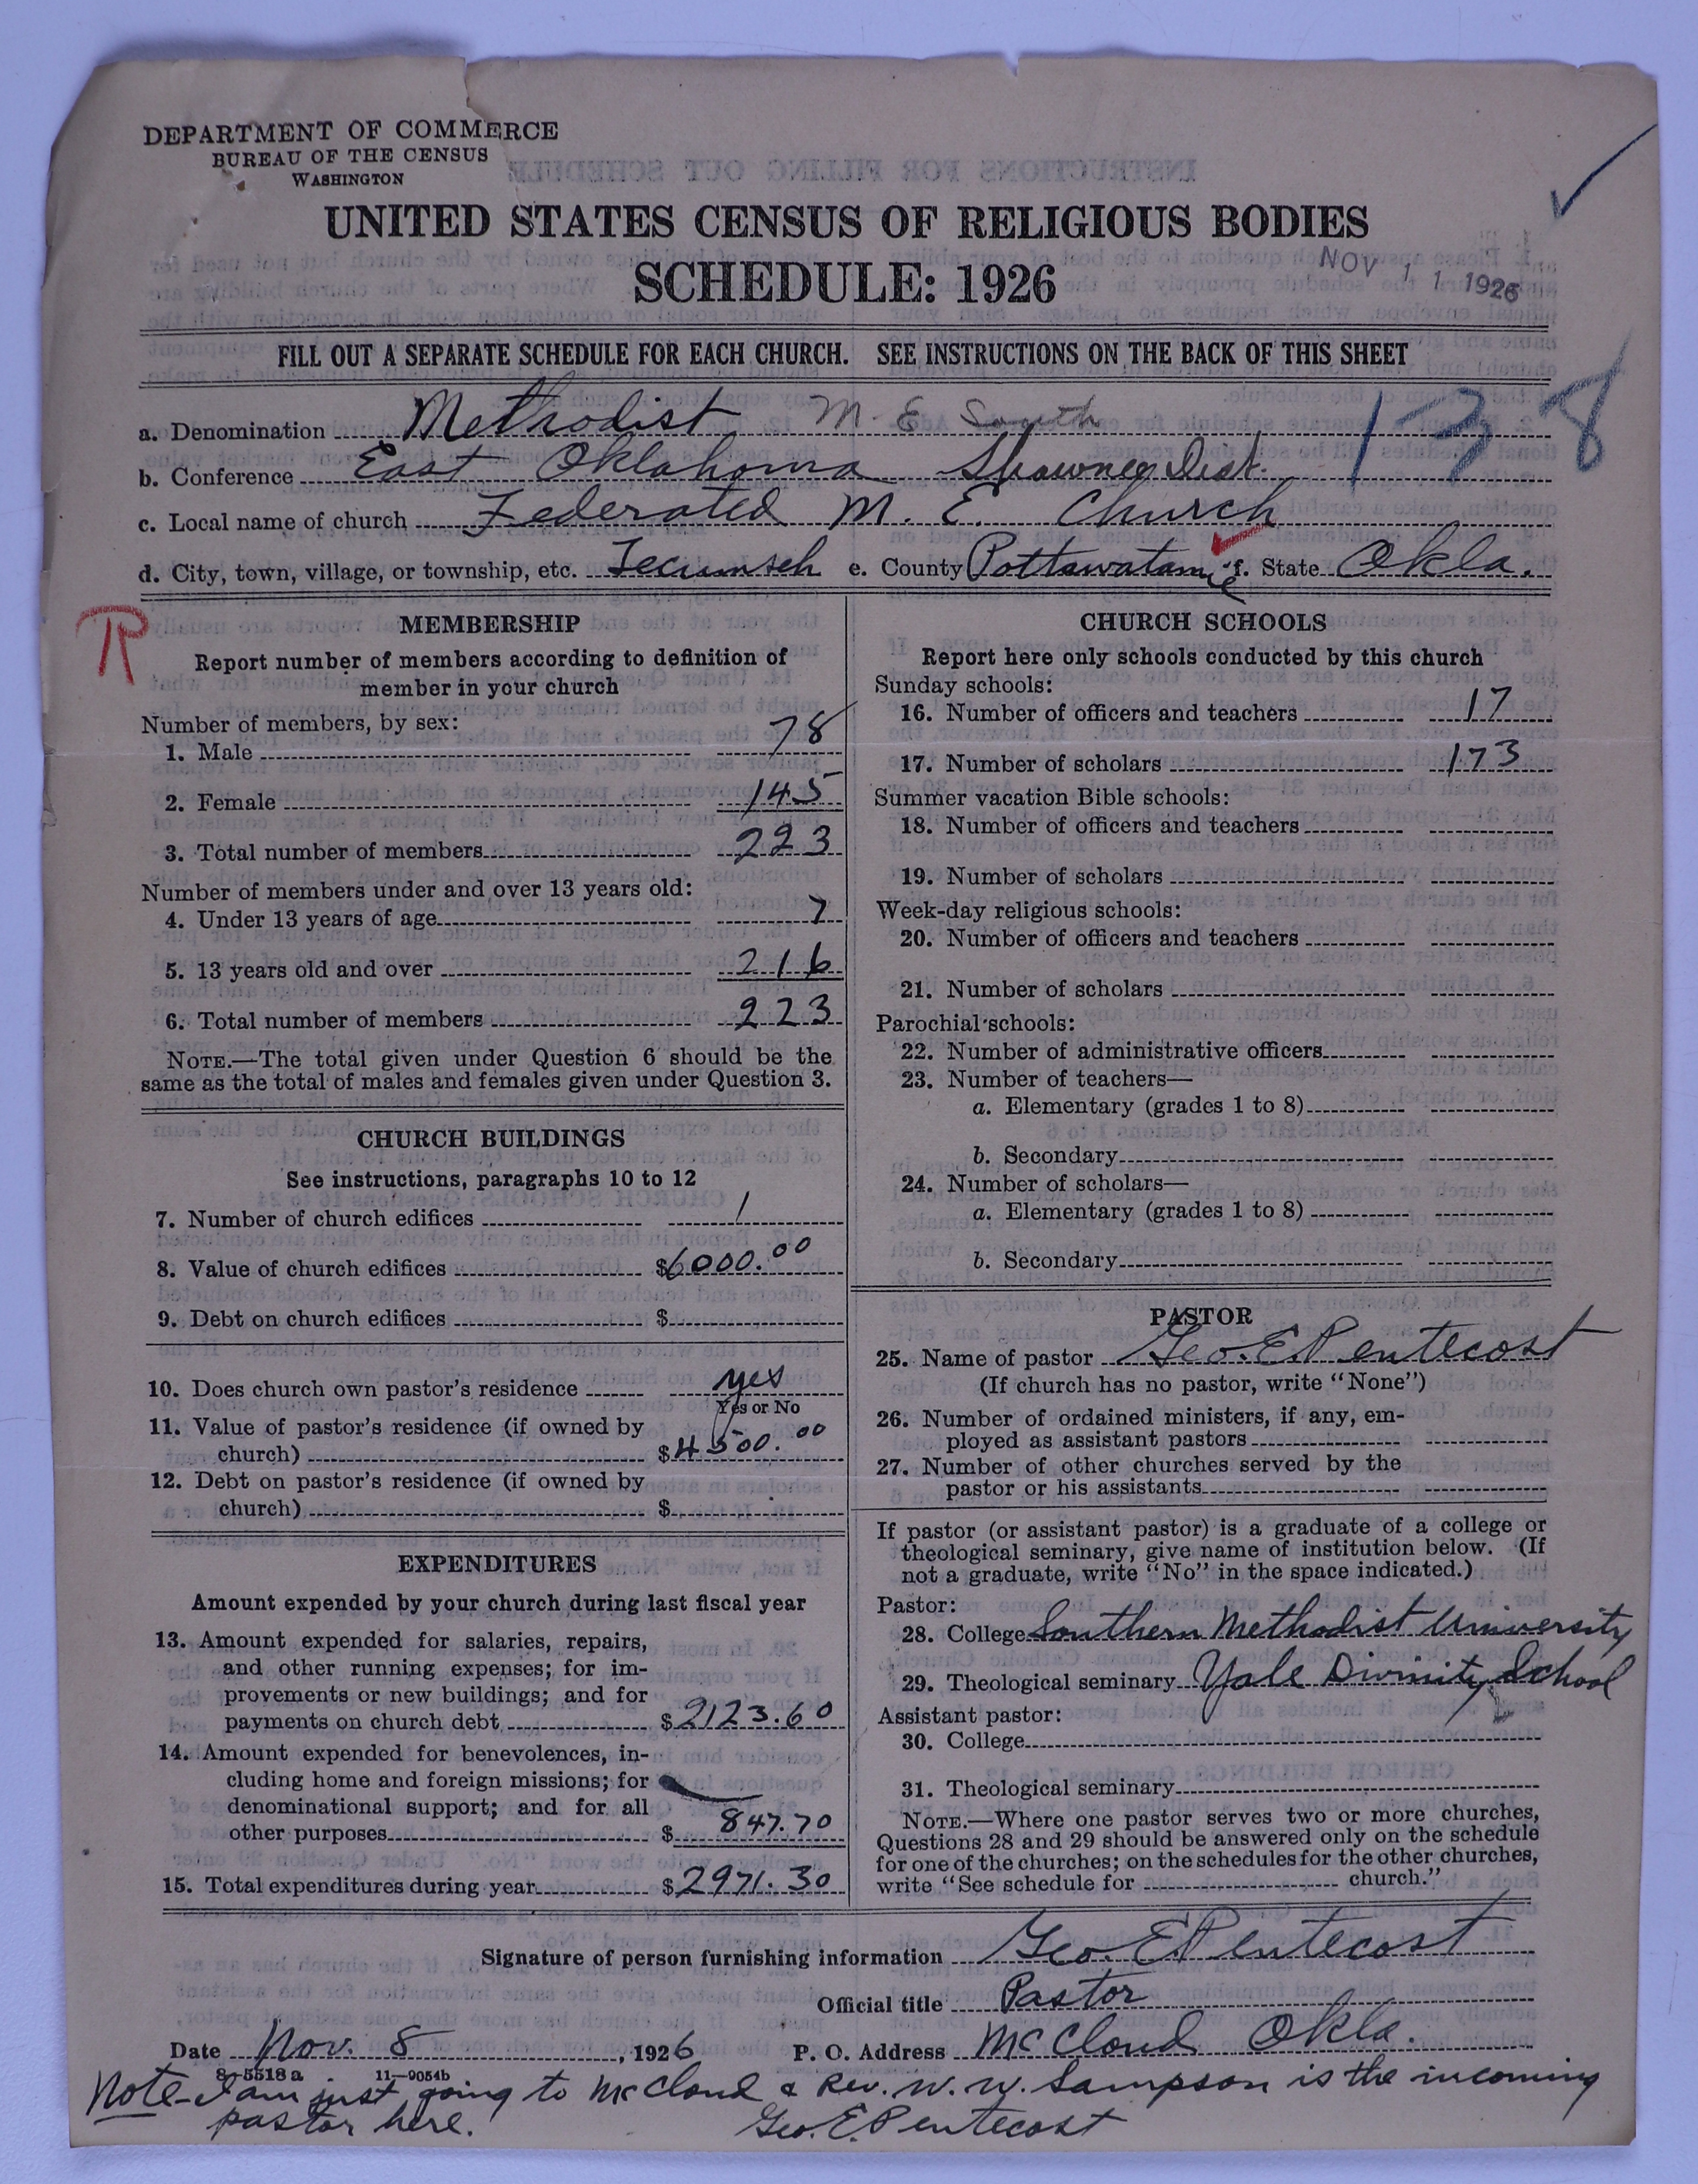 DEPARTMENT OF COMMERCE
BUREAU OF THE CENSUS
WASHINGTON
UNITED STATES CENSUS OF RELIGIOUS BODIES
SCHEDULE: 1926
NOV 11 1926
FILL OUT A SEPARATE SCHEDULE FOR EACH CHURCH. SEE INSTRUCTIONS ON THE BACK OF THIS SHEET
a. Denomination Methodist M. E South
1-38
b. Conference East Oklahoma Shawnee Dist.
c. Local name of church Federated M. E. Church
d. City, town, village, or township, etc. Tecumseh e. County Pottawatamie f. State Okla.
R
MEMBERSHIP
Report number of members according to definition of
member in your church
Number of members, by sex:
1. Male 78
2. Female 145
3. Total number of members 223
Number of members under and over 13 years old:
4. Under 13 years of age 7
5. 13 years old and over 216
6. Total number of members 223
NOTE.—The total given under Question 6 should be the
same as the total of males and females given under Question 3.
CHURCH BUILDINGS
See instructions, paragraphs 10 to 12
7. Number of church edifices 1
8. Value of church edifices $6000.00
9. Debt on church edifices $
10. Does church own pastor's residence yes
Yes or No
11. Value of pastor's residence (if owned by
church) $4500.00
12. Debt on pastor's residence (if owned by
church) $
EXPENDITURES
Amount expended by your church during last fiscal year
13. Amount expended for salaries, repairs,
and other running expenses; for im-
provements or new buildings; and for
payments on church debt $2123.60
14. Amount expended for benevolences, in-
cluding home and foreign missions; for
denominational support; and for all
other purposes $ 847.70
15. Total expenditures during year $2971.30
CHURCH SCHOOLS
Report here only schools conducted by this church
Sunday schools:
16. Number of officers and teachers 17
17. Number of scholars 173
Summer vacation Bible schools:
18. Number of officers and teachers
19. Number of scholars
Week-day religious schools:
20. Number of officers and teachers
21. Number of scholars
Parochial schools:
22. Number of administrative officers
23. Number of teachers—
a. Elementary (grades 1 to 8)
b. Secondary
24. Number of scholars—
a. Elementary (grades 1 to 8)
b. Secondary
PASTOR
25. Name of pastor Geo. E. Pentecost
(If church has no pastor, write "None")
26. Number of ordained ministers, if any, em-
ployed as assistant pastors
27. Number of other churches served by the
pastor or his assistants
If pastor (or assistant pastor) is a graduate of a college or
theological seminary, give name of institution below. (If
not a graduate, write "No" in the space indicated.)
Pastor:
28. College Southern Methodist University
29. Theological seminary Yale Divinity School
Assistant pastor:
30. College
31. Theological seminary
NOTE.—Where one pastor serves two or more churches,
Questions 28 and 29 should be answered only on the schedule
for one of the churches; on the schedules for the other churches,
write "See schedule for church."
Signature of person furnishing information Geo. E. Pentecost
Official title Pastor
Date Nov. 8, 1926 P. O. Address McCloud Okla.
8-5518a 11-9054b
Note-I am just going to McCloud & Rev. W. W. Sampson is the incoming
pastor here. Geo. E. Pentecost